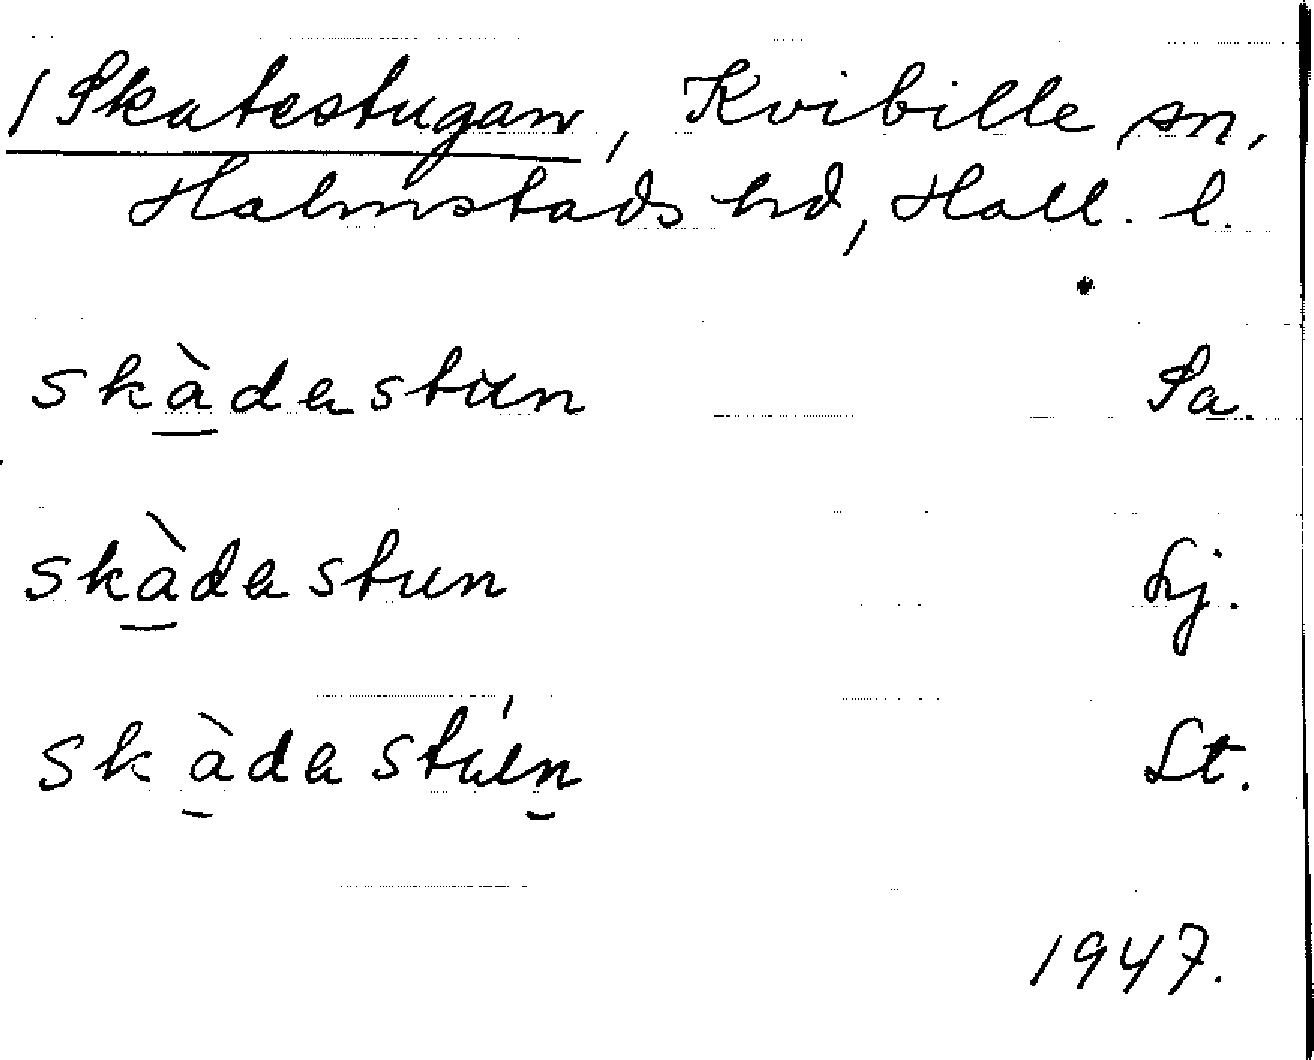 / Skatestugan, Kvibille sn,
Halmstads hd, Hall. l.
skàdastun Sa.
skàdastun Lj.
skàdastúen Lt.
1947.